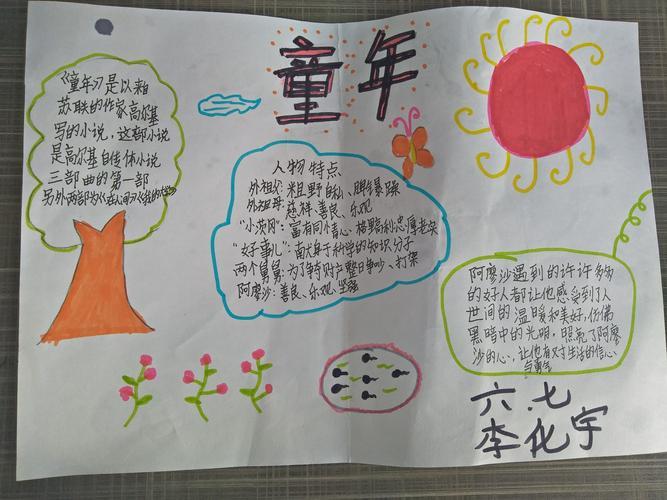 童年
《童年》是以来自
苏联的作家高尔基
写的小说，这部小说
是高尔基自传体小说
三部曲的第一部
另外两部为《在人间》《我的大学》
人物特点
外祖父：粗野自私、脾气暴躁
外祖母：慈祥善良、乐观
“小茨冈”：富有同情心
“好事儿”：献身于科学的知识分子
两个舅舅：为了争夺财产整日争吵、打架
阿廖沙：善良、乐观、坚强
阿廖沙遇到的许许多多
的好人都让他感受到了人
世间的温暖和美好，仿佛
黑暗中的光明，照亮了阿廖
沙的心，让他有对生活的信心
与勇气
六.七
李化宇